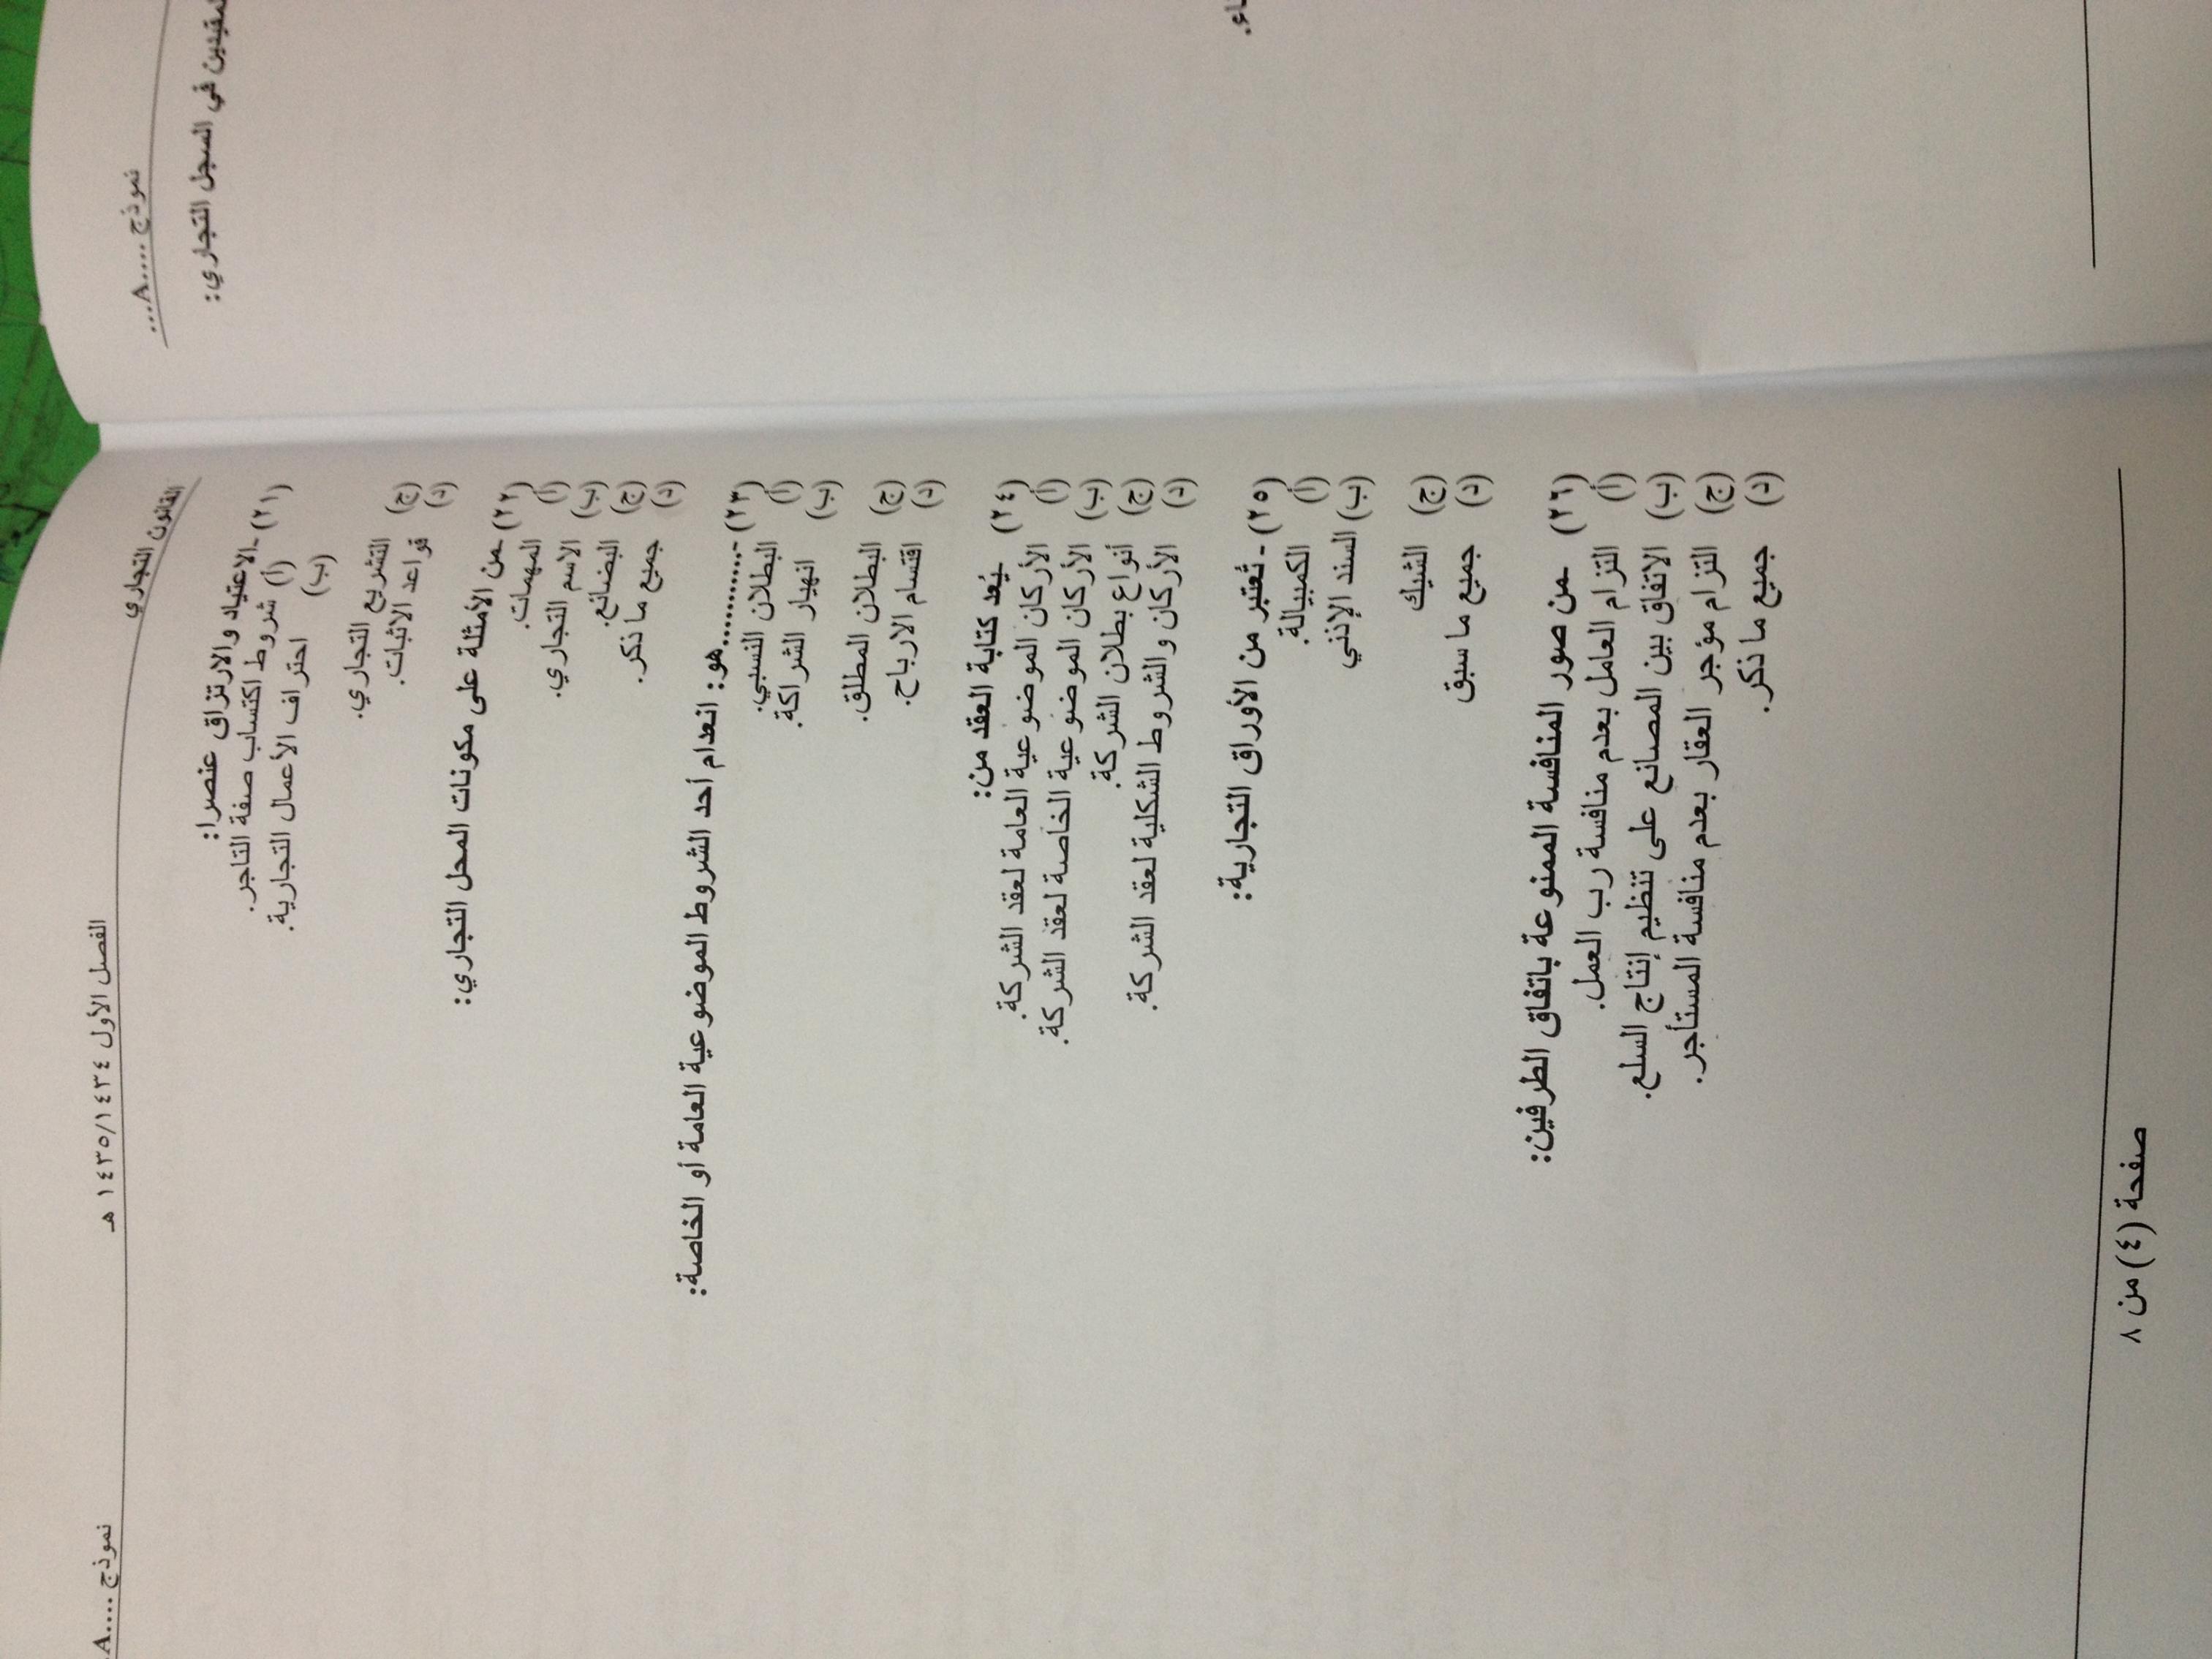 القانون التجاري
الفصل الأول ١٤٣٥/١٤٣٤ هـ
نموذج ....A
(٢١)- الاعتياد والارتزاق عنصرا:
(أ) شروط اكتساب صفة التاجر.
(ب) احتراف الأعمال التجارية.
(ج) التشريع التجاري.
(د) قواعد الاثبات.
(٢٢)- من الأمثلة على مكونات المحل التجاري:
(أ) المهمات.
(ب) الاسم التجاري.
(ج) البضائع.
(د) جميع ما ذكر.
(٢٣)- ............هو: انعدام أحد الشروط الموضوعية العامة أو الخاصة:
(أ) البطلان النسبي.
(ب) انهيار الشراكة.
(ج) البطلان المطلق.
(د) اقتسام الارباح.
(٢٤) يُعد كتابة العقد من:
(أ) الأركان الموضوعية العامة لعقد الشركة.
(ب) الأركان الموضوعية الخاصة لعقد الشركة.
(ج) أنواع بطلان الشركة.
(د) الأركان والشروط الشكلية لعقد الشركة.
(٢٥)- تُعتبر من الأوراق التجارية:
(أ) الكمبيالة.
(ب) السند الإذني
(ج) الشيك
(د) جميع ما سبق
(٢٦) -من صور المنافسة الممنوعة باتفاق الطرفين:
(أ) التزام العامل بعدم منافسة رب العمل.
(ب) الاتفاق بين المصانع على تنظيم إنتاج السلع.
(ج) التزام مؤجر العقار بعدم منافسة المستأجر.
(د) جميع ما ذكر.
صفحة (٤) من ٨
نموذج .....A...
في السجل التجاري: